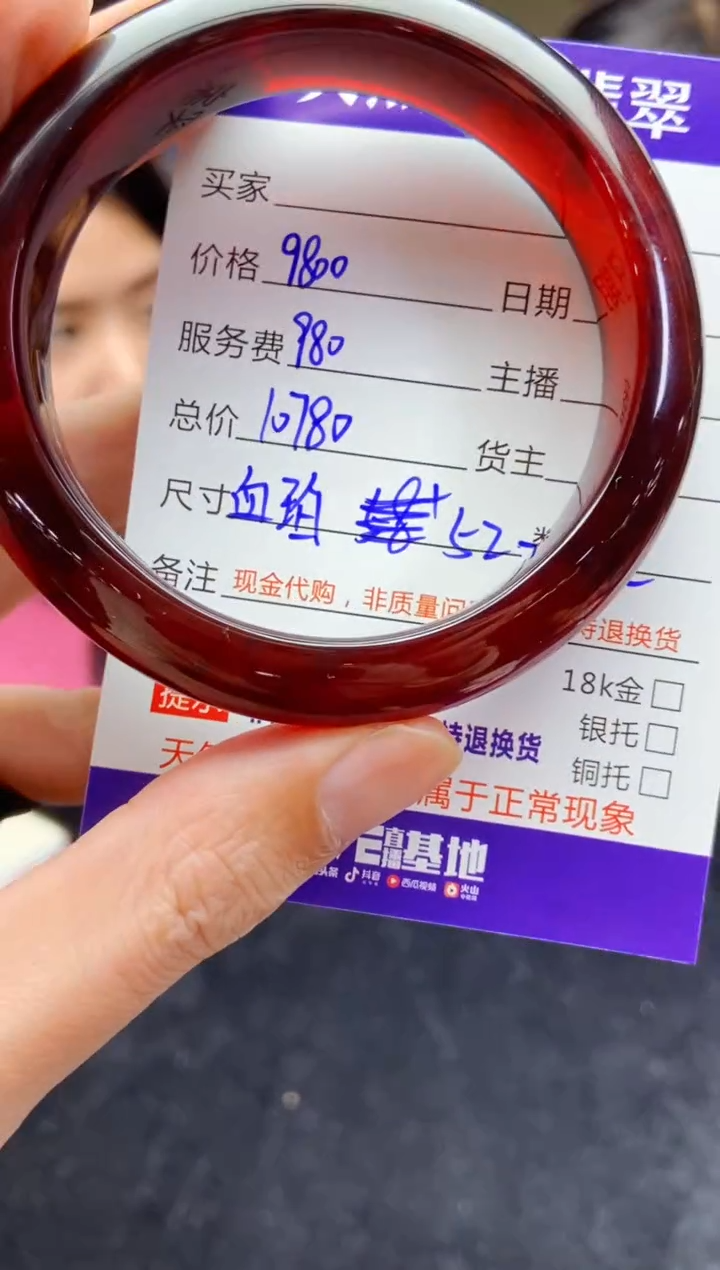 翡翠
买家
价格 9800 日期
服务费 980 主播
总价 10780 货主
尺寸 血珀 52
备注 现金代购，非质量问 特退换货
18k金
银托
提示 退换货
铜托
属于正常现象
直播基地
抖音 西瓜视频 火山